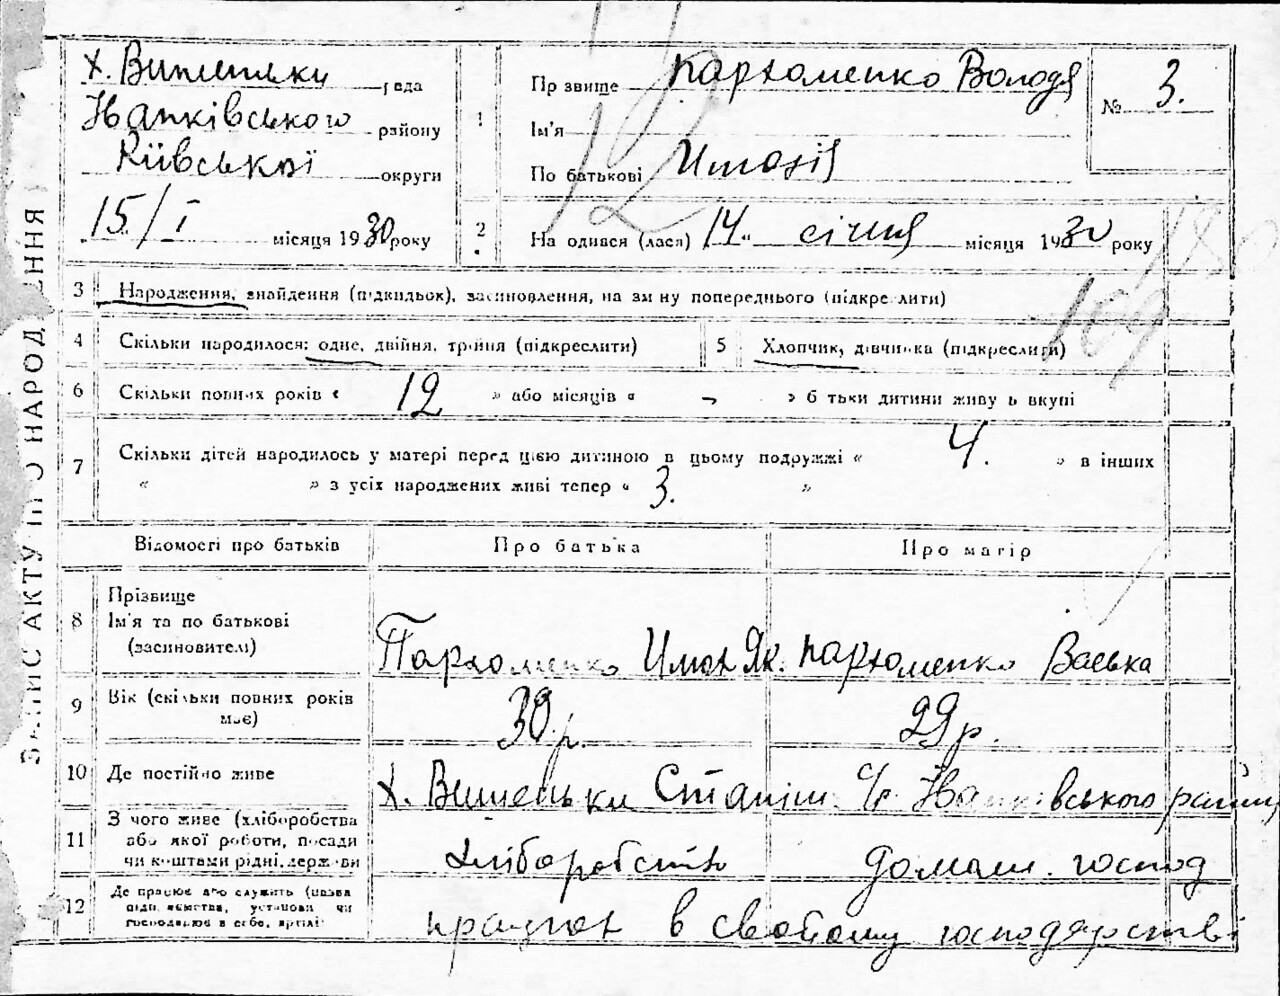 х. Вишеньки рада
Іванківського району
Київської округи
15/I місяця 1930 року
ЗАПИС АКТУ ПРО НАРОДЖЕННЯ
1 Прізвище Пархоменко Володя
Ім'я
По батькові
№ 3.
2 Народився (лася) 14 " січня місяця 1930 року
3 Народження, знайдення (підкидьок), засиновлення, на заміну попереднього (підкреслити)
4 Скільки народилося: одне, двійня, трійня (підкреслити)
5 Хлопчик, дівчинка (підкреслити)
6 Скільки повних років « 12 » або місяців « - » батьки дитини живуть вкупі
7 Скільки дітей народилось у матері перед цією дитиною в цьому подружжі « 4. » в інших
« » з усіх народжених живі тепер « 3. »
Відомості про батьків Про батька Про матір
8 Прізвище
Ім'я та по батькові
(засиновителі)
Пархоменко Як. Пархоменко Васька
9 Вік (скільки повних років
має)
30 р. 29 р.
10 Де постійно живе х. Вишеньки с/р. Іванківського району
11 З чого живе (хліборобства
або якої роботи, посади
чи коштами рідні, держави
хліборобство домаш. господ
12 Де працює або служить (назва
підприємства, установи чи
господарює в себе, артілі
в свойому господарстві